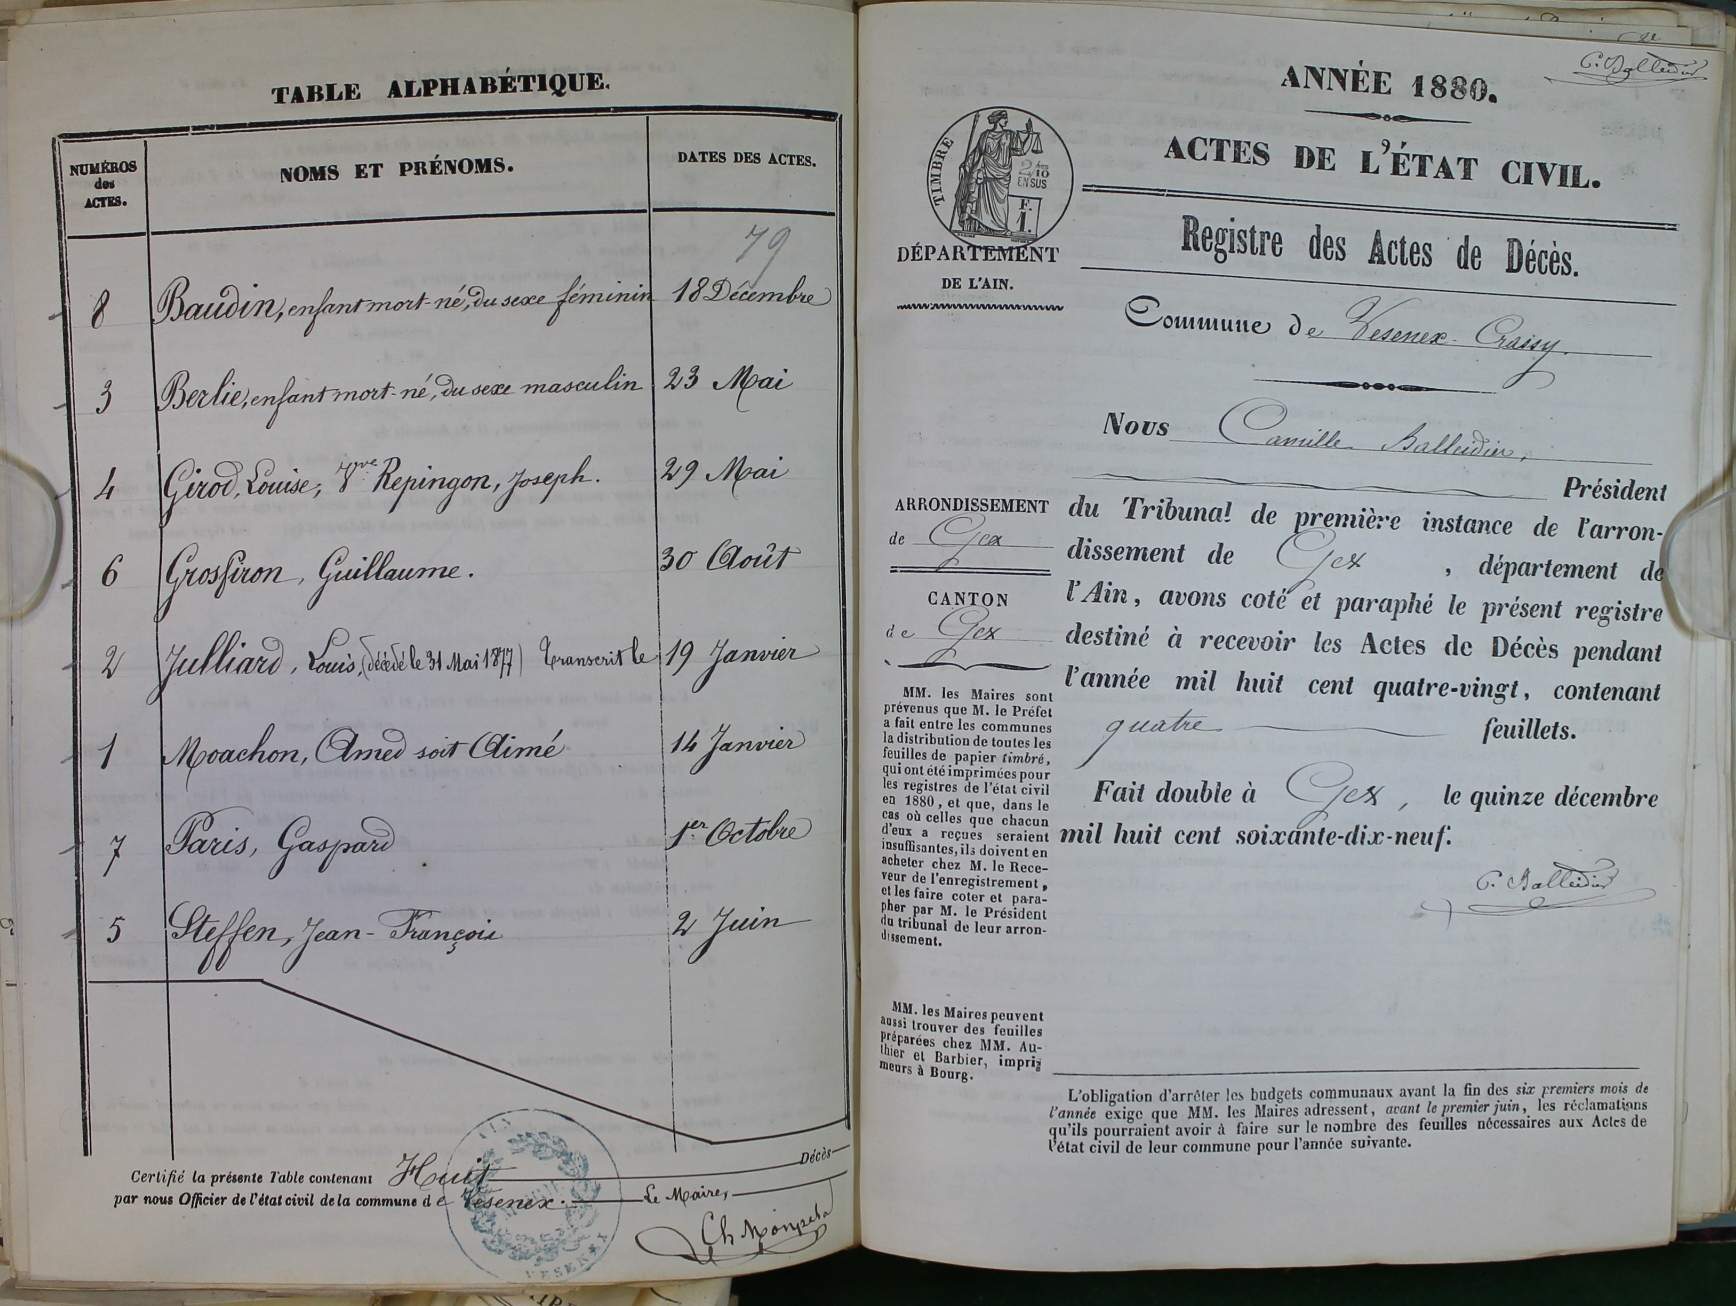 TABLE ALPHABÉTIQUE.
NUMÉROS
des
ACTES.
NOMS ET PRÉNOMS.
DATES DES ACTES.
79
8 Baudin, enfant mort-né, du sexe féminin 18 Décembre
3 Berlie, enfant mort-né, du sexe masculin 23 Mai
4 Girod, Louise, Vve Repingon, Joseph. 29 Mai
6 Grosfiron, Guillaume. 30 Août
2 Julliard, Louis, (décédé le 31 Mai 1877) Transcrit le 19 Janvier
1 Moachon, Amed soit Aimé 14 Janvier
7 Paris, Gaspard 1er Octobre
5 Steffen, Jean-François 2 Juin
Certifié la présente Table contenant Huit Décès
par nous Officier de l'état civil de la commune de Vesenex. Le Maire,
C. Balleidier
ANNÉE 1880.
ACTES DE L'ÉTAT CIVIL.
TIMBRE
2/10
EN SUS
F.
1.
DÉPARTEMENT
DE L'AIN.
Registre des Actes de Décès.
Commune de Vesenex-Crassy.
Nous Camille Balleidier,
Président
du Tribunal de première instance de l'arron-
dissement de Gex, département de
l'Ain, avons coté et paraphé le présent registre
destiné à recevoir les Actes de Décès pendant
l'année mil huit cent quatre-vingt, contenant
quatre feuillets.
Fait double à Gex, le quinze décembre
mil huit cent soixante-dix-neuf.
C. Balleidier
ARRONDISSEMENT
de Gex
CANTON
de Gex
MM. les Maires sont
prévenus que M. le Préfet
a fait entre les communes
la distribution de toutes les
feuilles de papier timbré,
qui ont été imprimées pour
les registres de l'état civil
en 1880, et que, dans le
cas où celles que chacun
d'eux a reçues seraient
insuffisantes, ils doivent en
acheter chez M. le Rece-
veur de l'enregistrement,
et les faire coter et para-
pher par M. le Président
du tribunal de leur arron-
dissement.
MM. les Maires peuvent
aussi trouver des feuilles
préparées chez MM. Au-
thier et Barbier, impri-
meurs à Bourg.
L'obligation d'arrêter les budgets communaux avant la fin des six premiers mois de
l'année exige que MM. les Maires adressent, avant le premier juin, les réclamations
qu'ils pourraient avoir à faire sur le nombre des feuilles nécessaires aux Actes de
l'état civil de leur commune pour l'année suivante.